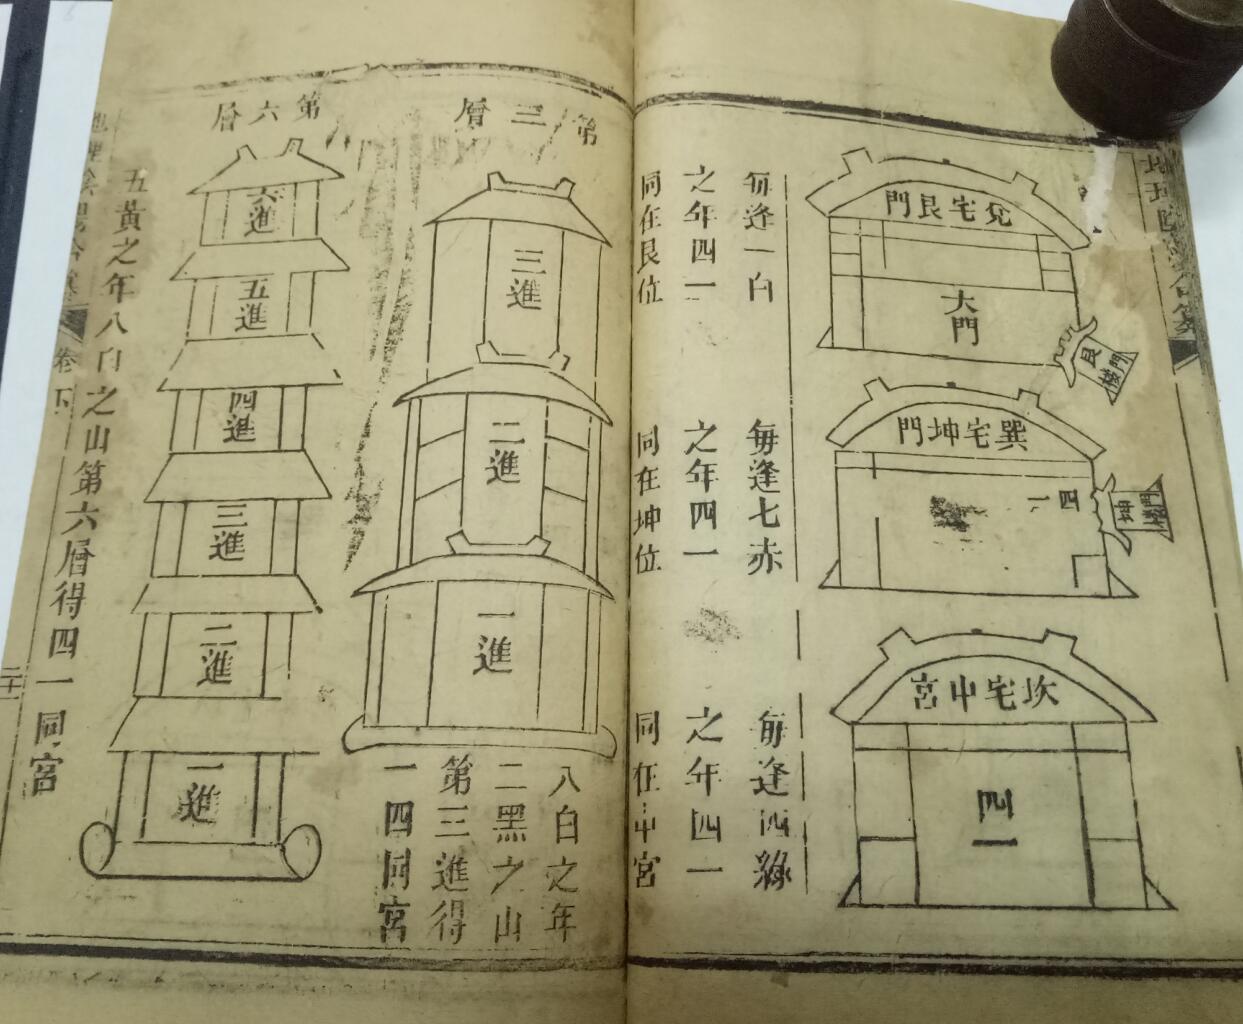 兌宅艮門
大門
艮
門樓
每逢一白
之年四一
同在艮位
巽宅坤門
四一
坤
門樓
每逢七赤
之年四一
同在坤位
坎宅中宮
四一
每逢四綠
之年四一
同在中宮
第三層
三進
二進
一進
八白之年
二黑之山
第三進得
一四同宮
第六層
六進
五進
四進
三進
二進
一進
五黃之年八白之山第六層得四一同宮
卷下